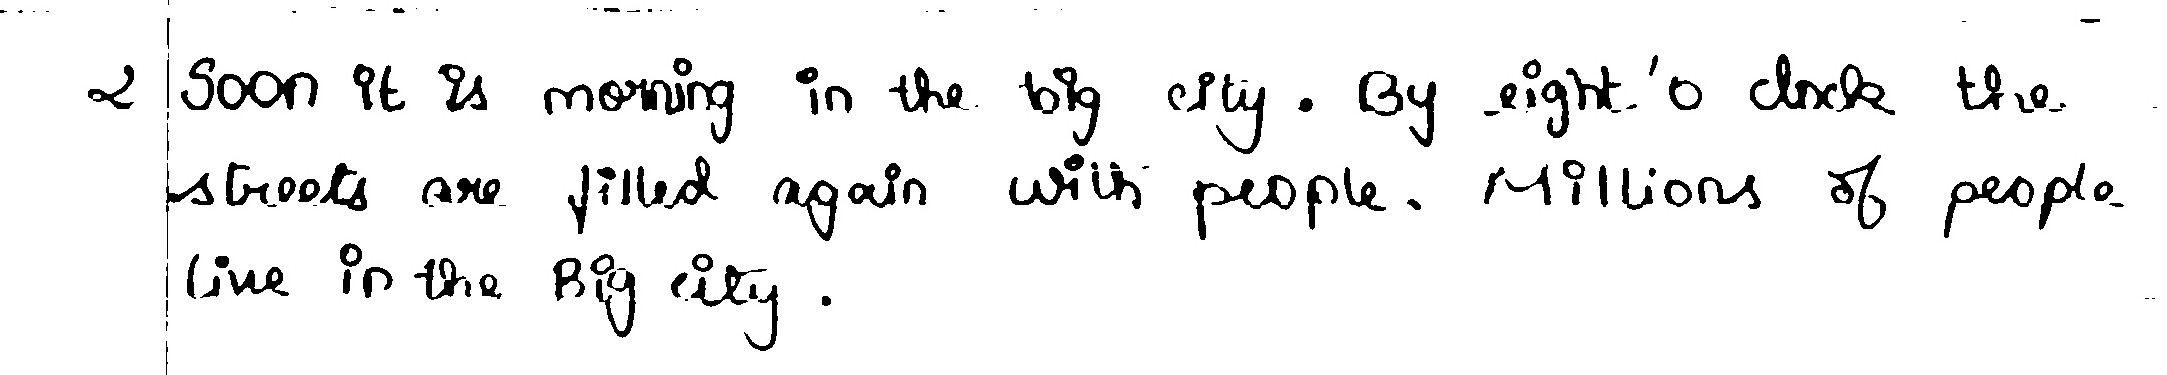 2 Soon it is morning in the big city. By eight 'o clock the
streets are filled again with people. Millions of people
live in the Big city.